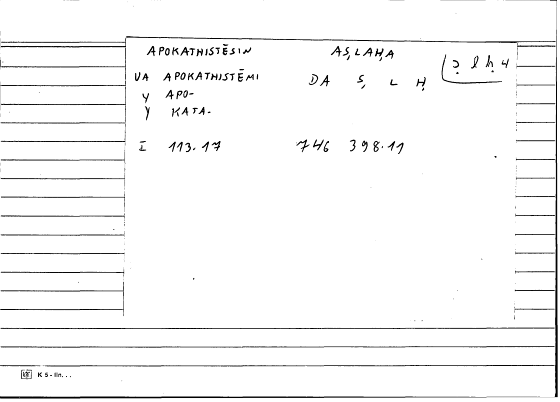 APOKATHISTĒSIN AṢLAḤA
VA APOKATHISTĒMI DA Ṣ L Ḥ
Y APO-
Y KATA-
I 113.17 746 398.11
K 5 - lin...